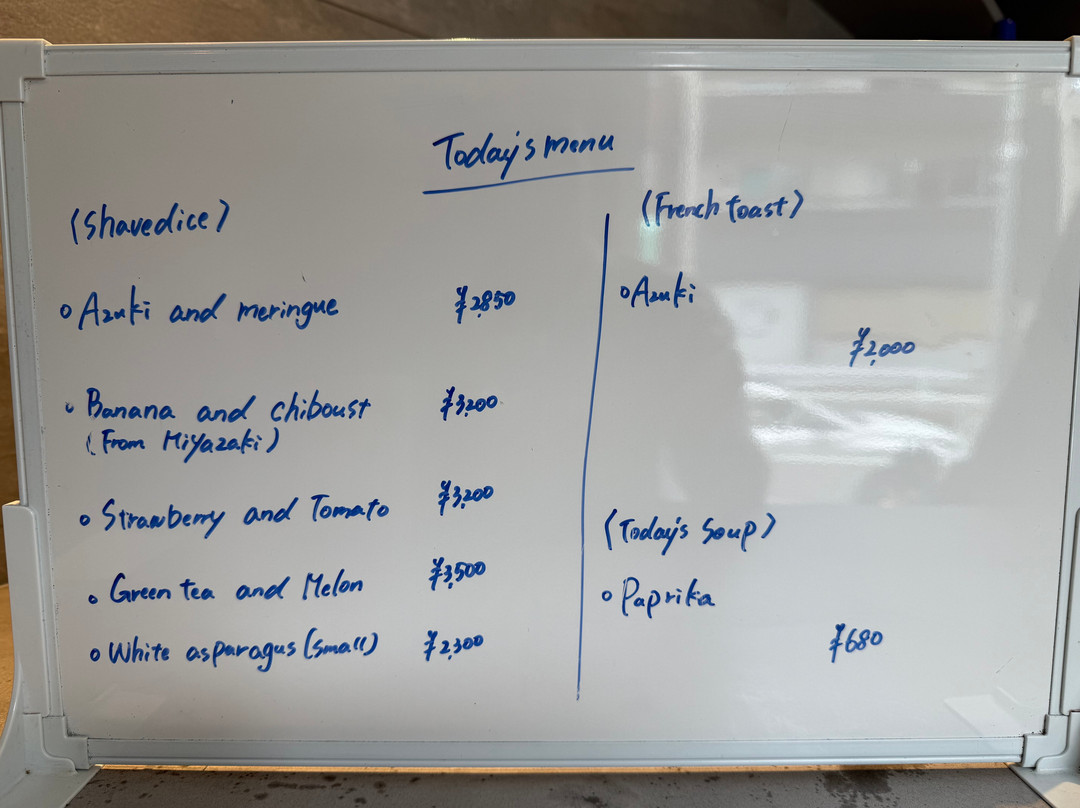 Today's menu
(Shaved ice)
○ Azuki and meringue ¥2,850
○ Banana and chiboust ¥3,200
(From Miyazaki)
○ Strawberry and Tomato ¥3,200
○ Green tea and Melon ¥3,500
○ White asparagus (small) ¥2,300
(French toast)
○ Azuki
¥2,000
(Today's Soup)
○ Paprika
¥680